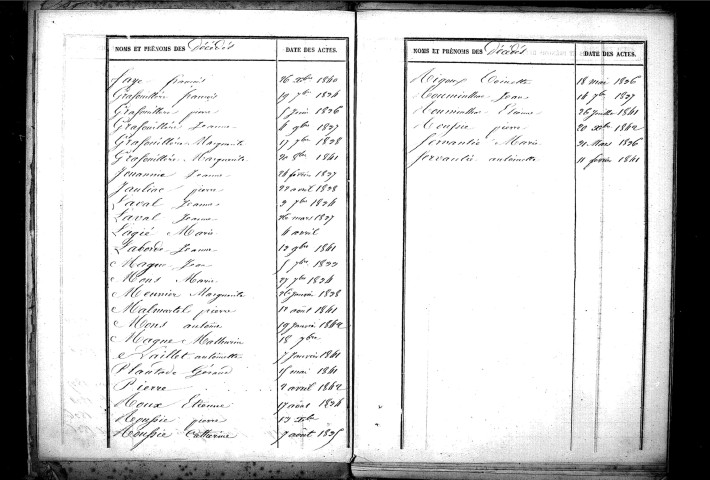 NOMS ET PRÉNOMS DES Décédés DATE DES ACTES.
Faye françois 26 xbre 1840
Grafouillère françois 19 7bre 1824
Grafouillère pierre 5 juin 1826
Grafouillère Jeanne 4 9bre 1827
Grafouillère Marguerite 17 7bre 1828
Grafouillère Marguerite 20 8bre 1841
Jouannie Jeanne 24 février 1827
Jaubiac pierre 22 avril 1828
Laval Jeanne 2 7bre 1824
Laval Jeanne 26 mars 1827
Lagié Marie 4 avril
Laborde Jeanne 12 9bre 1841
Magne Jean 5 7bre 1822
Mons Marie 27 7bre 1824
Meunier Marguerite 26 janvier 1828
Malmartel pierre 12 août 1841
Mons antoine 19 janvier 1842
Magne Mathurin 18 7bre
Laillet antoinette 7 janvier 1841
Plantade Géraud 15 mai 1841
Pierre 2 avril 1842
Roux Etienne 17 août 1824
Roussie pierre 12 xbre
Roussie Catherine 7 août 1825
NOMS ET PRÉNOMS DES Décédés DATE DES ACTES.
Rigoux Toinette 18 mai 1826
Jean 14 7bre 1827
Etienne 26 juillet 1841
Roussie pierre 20 xbre 1842
Servantie Marie 21 Mars 1826
Servantie antoinette 11 février 1841